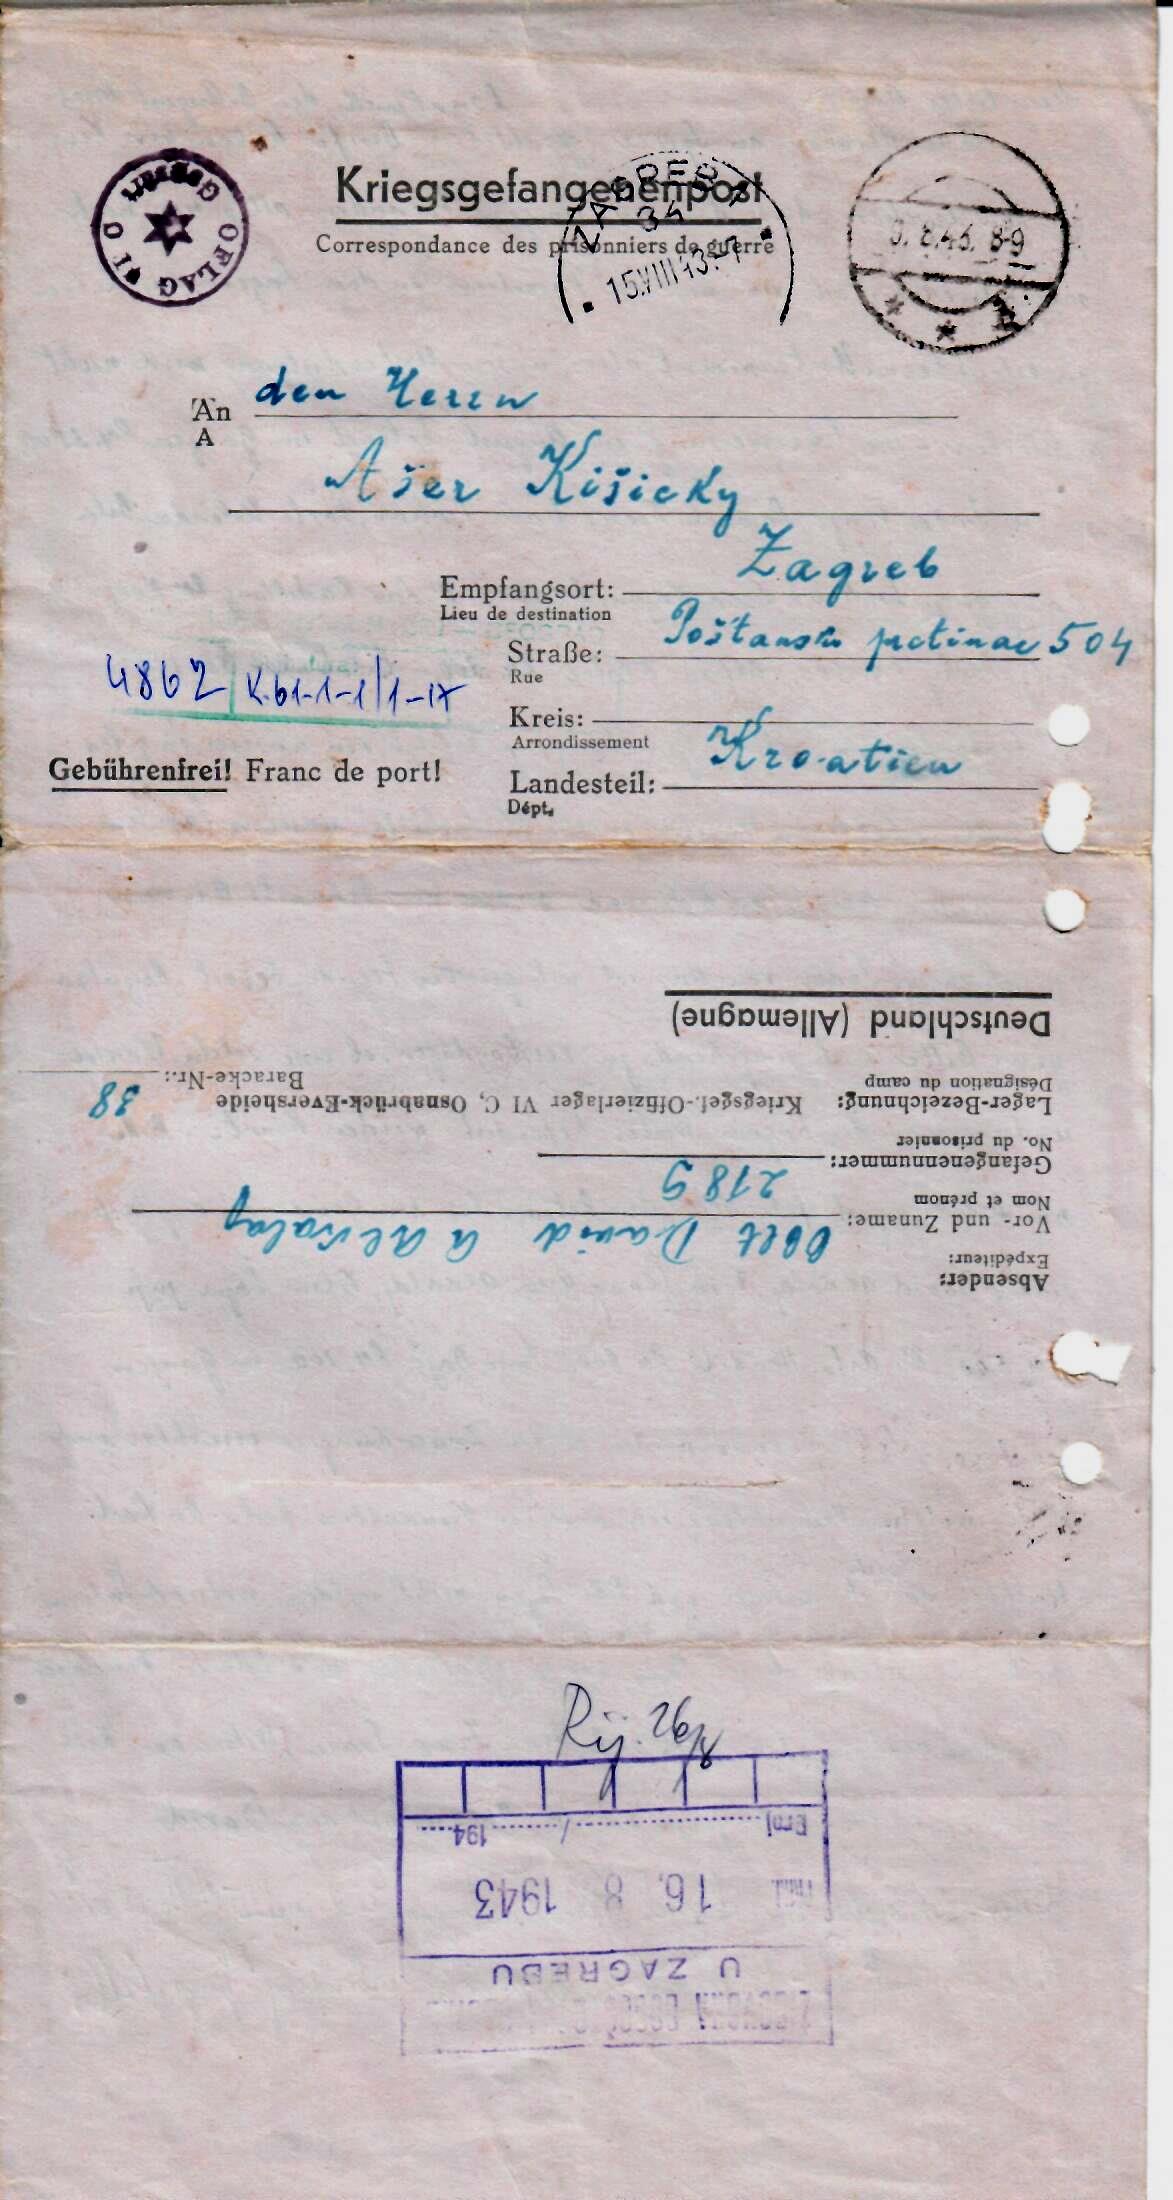 Kriegsgefangenenpost
Correspondance des prisonniers de guerre
ZAGREB
34
15.VIII 43.-7
8.43. 8-9
Geprüft
OFLAG VI
An den Herrn
A
Ašer Kišicky
Empfangsort: Zagreb
Lieu de destination
Straße: Poštanski pretinac 504
Rue
4862 K-61-1-1/1-17
Kreis:
Arrondissement
Kroatien
Gebührenfrei! Franc de port!
Landesteil:
Dépt.
Absender:
Expéditeur:
Vor- und Zuname: Oblt David A Alkalay
Nom et prénom
Gefangenennummer: 2189
No. du prisonnier
Lager-Bezeichnung: Kriegsgef.-Offizierlager VI C, Osnabrück-Eversheide
Désignation du camp
Baracke-Nr.: 38
Deutschland (Allemagne)
Rij. 26/8
U ZAGREBU
Prid. 16. 8 1943
Broj / 194